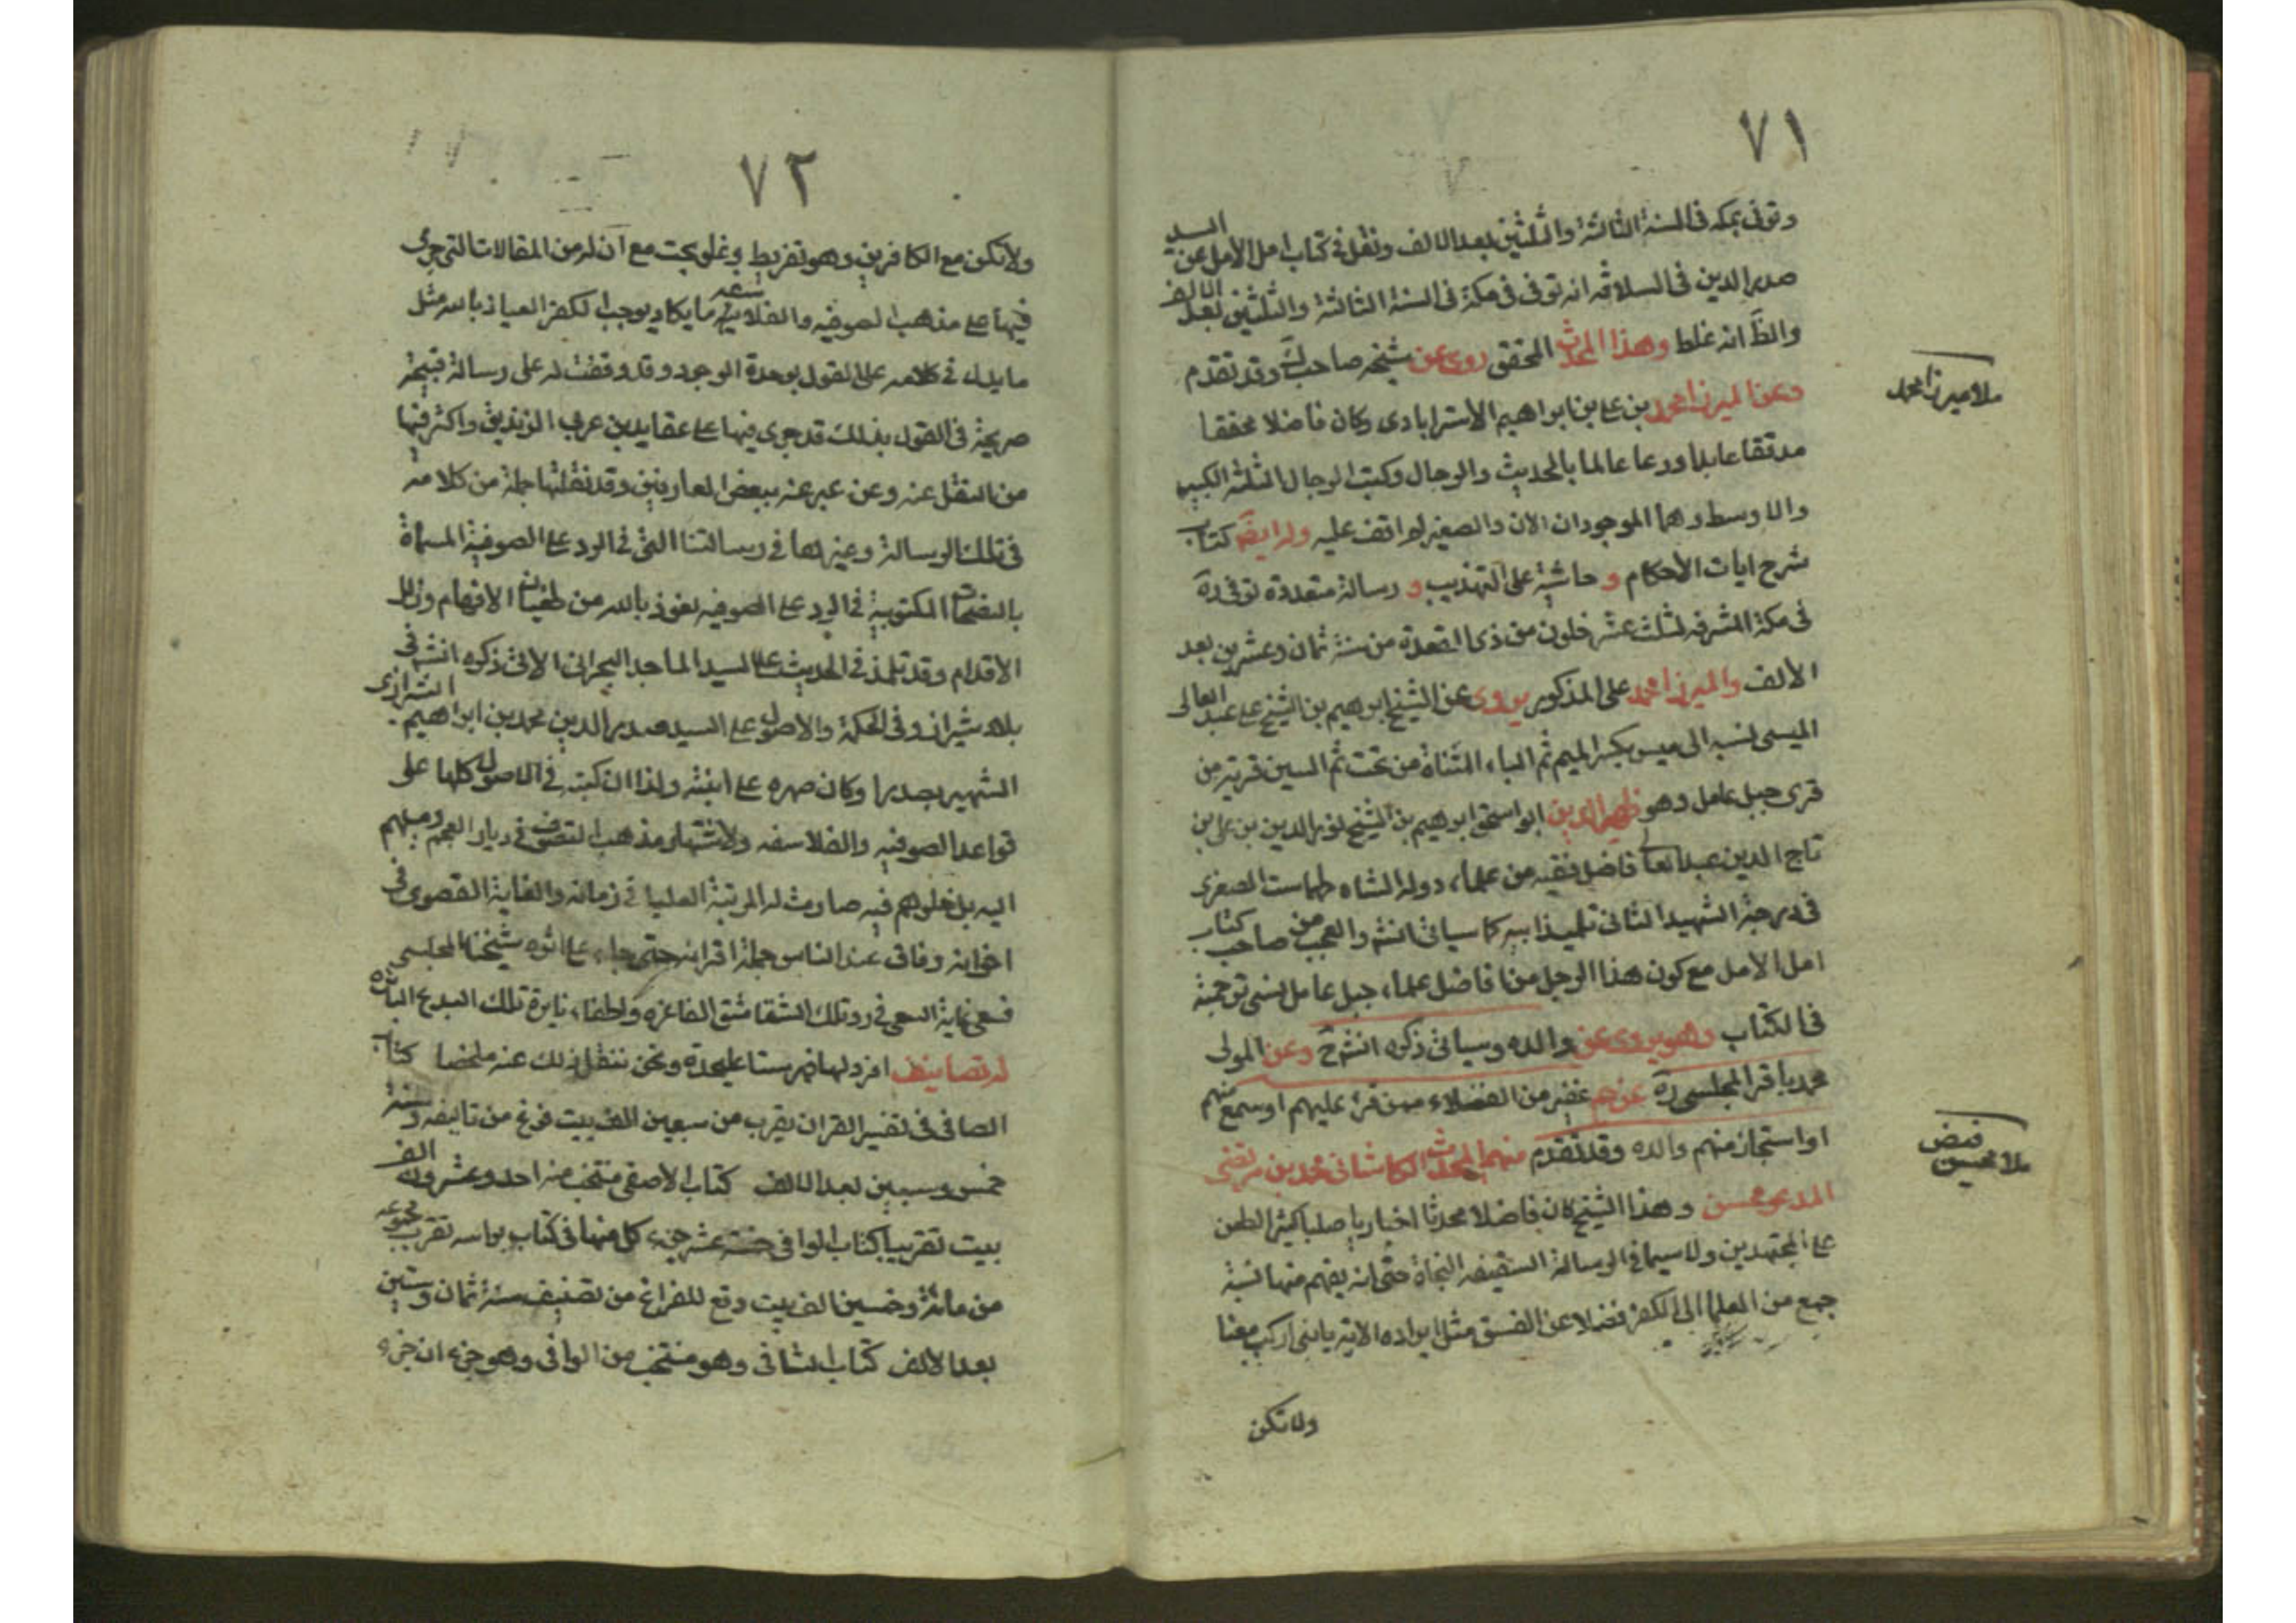 ٧١
وتوفى بمكه فى السنة الثالثة والثلثين بعد الالف ونقل فى كتاب امل الامل عن السيد
صدر الدين فى السلافه انه توفى فى مكة فى السنة الثالثة والثلثين بعد الالف
والظ انه غلط وهذا المحدث المحقق روى عن شيخه صاحب لك وقد تقدم
وعن الميرزا محمد بن على بن ابراهيم الاسترابادى وكان فاضلا محققا
ملا ميرزا محمد
مدققا عابدا ورعا عالما بالحديث والرجال وكتب الرجال الثلثة الكبير
والاوسط وهما الموجودان الان والصغير لم اقف عليه وله ايضا كتاب
شرح ايات الاحكام و حاشية على التهذيب و رسالة متعددة توفى ره
فى مكة المشرفه لثلث عشر خلون من ذى القعدة من سنة ثمان وعشرين بعد
الالف والميرزا محمد على المذكور يروى عن الشيخ ابرهيم بن الشيخ على عبد العالى
الميسى نسبه الى ميس بكسر الميم ثم الياء المثناة من تحت ثم السين قرية من
قرى جبل عامل وهو ظهير الدين ابو اسحق ابرهيم بن الشيخ نور الدين بن على بن
تاج الدين عبد العا فاضل فقيه من علماء دولة الشاه طهماست الصفرى
فى درجة الشهيد الثانى تلميذ ابيه كما سياتى انشم والعجب من صاحب كتاب
امل الامل مع كون هذا الرجل من افاضل علماء جبل عامل نسى ترجمته
فى الكتاب وهو يروى عن والده وسياتى ذكره انشم ح وعن المولى
محمد باقر المجلسى ره عن جم غفير من الفضلاء ممن قرء عليهم او سمع منهم
او استجاز منهم والده وقد تقدم منهم المحدث الكاشانى محمد بن مرتضى
فيض
ملا محسن
المدعو محسن وهذا الشيخ كان فاضلا محدثا اخباريا صلبا كثير الطعن
على المجتهدين ولا سيما فى الرسالة السفينه النجاة حتى انه يفهم منها نسبة
جمع من العلما الى الكفر فضلا عن الفسق مثل ايراده الاية يا بنى اركب معنا
ولا تكن
٧٢
ولا تكن مع الكافرين وهو تفريط وغلو بحت مع ان له من المقالات التى جرى
فيها على مذهب الصوفيه والفلاسفه ما يكاد يوجب الكفر العياذ بالله مثل
ما يدل فى كلامه على القول بوحدة الوجود وقد وقفت له على رسالة قبيحة
صريحة فى القول بذلك قد جرى فيها على عقايد بن عربى الزنديق واكثر فيها
من النقل عنه وعن عبر عنه ببعض العارفين وقد نقلنا جملة من كلامه
فى تلك الرسالة وغيرها فى رسالتنا التى فى الرد على الصوفية المسماة
بالنفحات المكتوبية فى الرد على الصوفيه نعوذ بالله من طغيان الافهام وزلل
الاقدام وقد تلمذ فى الحديث على السيد الماجد البحرانى الاتى ذكره انشم فى
بلاد شيراز وفى الحكمة والاصول على السيد صدر الدين محمد بن ابراهيم الشيرازى
الشهير بصدرا وكان صهره على ابنته ولذا ان كتبه فى الاصول كلها على
قواعد الصوفيه والفلاسفه ولاشتهار مذهب التصوف فى ديار العجم وميلهم
اليه بل غلوهم فيه صارت له المرتبة العليا فى زمانه والغاية القصوى فى
اخوانه وفاق عند الناس جملة اقرانه حتى جاء على اثره شيخنا المجلسى
فسعى غاية السعى فى رد تلك الشقاشق الفاغره واطفاء نايرة تلك البدع البائره
له تصانيف افرد لها فهرستا على حدة ونحن ننقل ذلك عنه ملخصا كتاب
الصافى فى تفسير القران يقرب من سبعين الف بيت فرغ من تاليفه سنة
خمس وسبعين بعد الالف كتاب الاصفى منتخب منه احد وعشرون الف
بيت تقريبا كتاب الوافى خمسة عشر جزء كل منها فى كتاب براسه تقرب مجموعه
من مائة وخمسين الف بيت وقع للفراغ من تصنيف سنة ثمان وستين
بعد الالف كتاب الشافى وهو منتخب من الوافى وهو جزء ان جزء